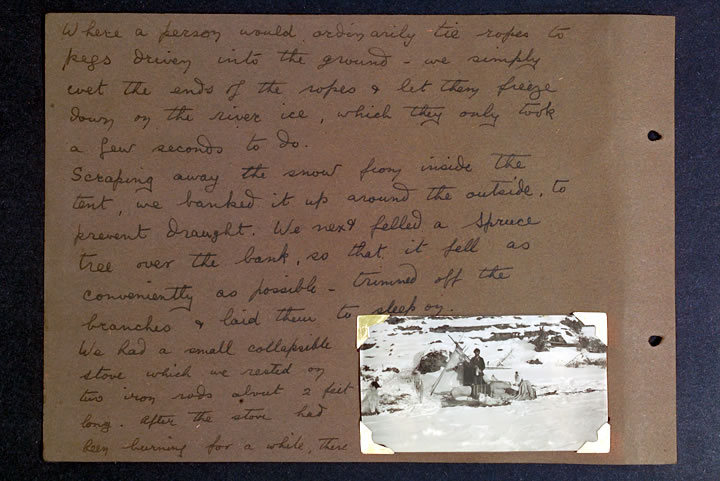 Where a person would ordinarily tie ropes to
pegs driven into the ground - we simply
wet the ends of the ropes & let them freeze
down on the river ice, which they only took
a few seconds to do.
Scraping away the snow from inside the
tent, we banked it up around the outside, to
prevent draught. We next felled a Spruce
tree over the bank, so that it fell as
conveniently as possible - trimmed off the
branches & laid them to sleep on.
We had a small collapsible
stove which we rested on
two iron rods about 2 feet
long. After the stove had
been burning for a while, there